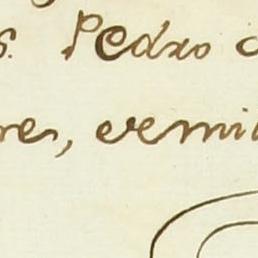 s. Pedro
re, ermi